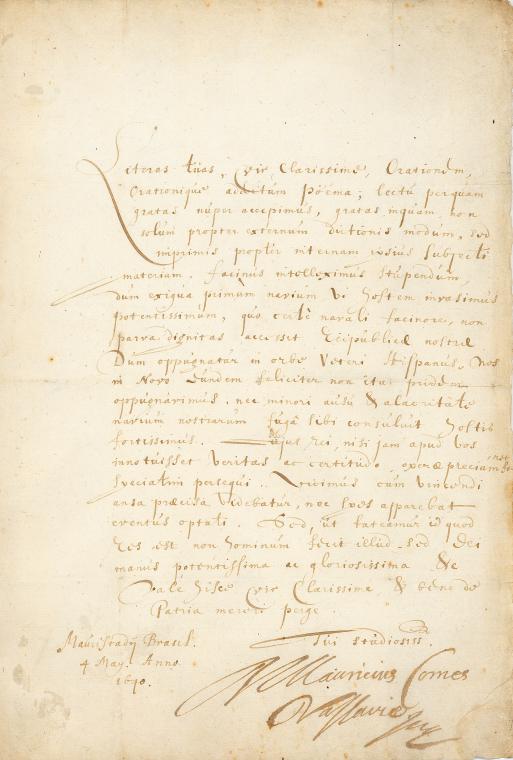 Literas tuas, Vir Clarissime, Orationem,
Orationique additum poëma; lectu perquam
gratas nuper accepimus, gratas inquam, non
solum propter externum dictionis modum, sed
imprimis propter internam ipsius Subjecti
materiam. facinus intelleximus stupendum,
dum exigua primum navium vi hostem invasimus
potentissimum, quo certè navali facinore, non
parva dignitas accessit Reipublicæ nostræ
Dum oppugnatur in orbe Veteri Hispanus, Nos
in Novo Eundem feliciter non ita pridem
oppugnavimus, nec minori ausu & alacritate
navium nostrarum fugâ sibi consuluit hostis
fortissimus. rei, nisi jam apud vos
innotuisset veritas ac certitudo, operæ precium
Speciatim persequi. Vicimus cum vincendi
ansa præcisa videbatur, nec spes apparebat
eventus optati. Sed, ut fateamur id quod
res est non hominum fecit illud sed Dei
manus potentissima ac gloriosissima &c
Vale hisce Vir Clarissime, & bene de
Patria mereri perge.
Mauristadij Brasil.
4 May. Anno
1640.
Tui studiosiss.
Mauricius Comes
Nassaviæ